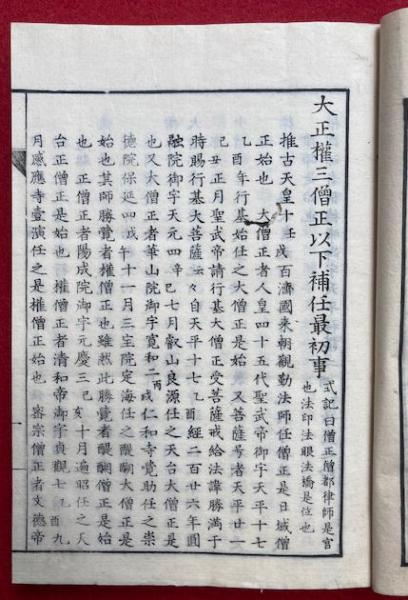 大正權三僧正以下補任最初事 式記曰僧正僧都律師是官
也法印法眼法橋是位也
推古天皇十壬戌百濟國来朝觀勤法師任僧正是日域僧
正始也 大僧正者人皇四十五代聖武帝御宇天平十七
乙酉年行基始任之大僧正是始 又菩薩号者天平廿一
己丑正月聖武帝請行基大僧正受菩薩戒給法諱勝滿于
時賜行基大菩薩云々自天平十七乙酉經二百廿六年圓
融院御宇天元四辛巳七月叡山良源任之天台大僧正是
也又大僧正者華山院御宇寛和二丙戌仁和寺寛助任之崇
德院保延四戊午十一月三宝院定海任之醍醐大僧正是
始也其師勝覺者權僧正也雖然此勝覺者醍醐僧正是始
也 正僧正者陽成院御宇元慶三己亥十月遍昭任之天
台正僧正是始也 權僧正者清和帝御宇貞觀七乙酉九
月感應寺壹演任之是權僧正始也 密宗僧正者文德帝